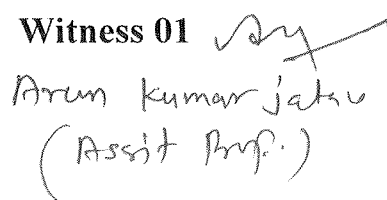 Witness 01
Arun kumar jatav
(Assit Prof.)